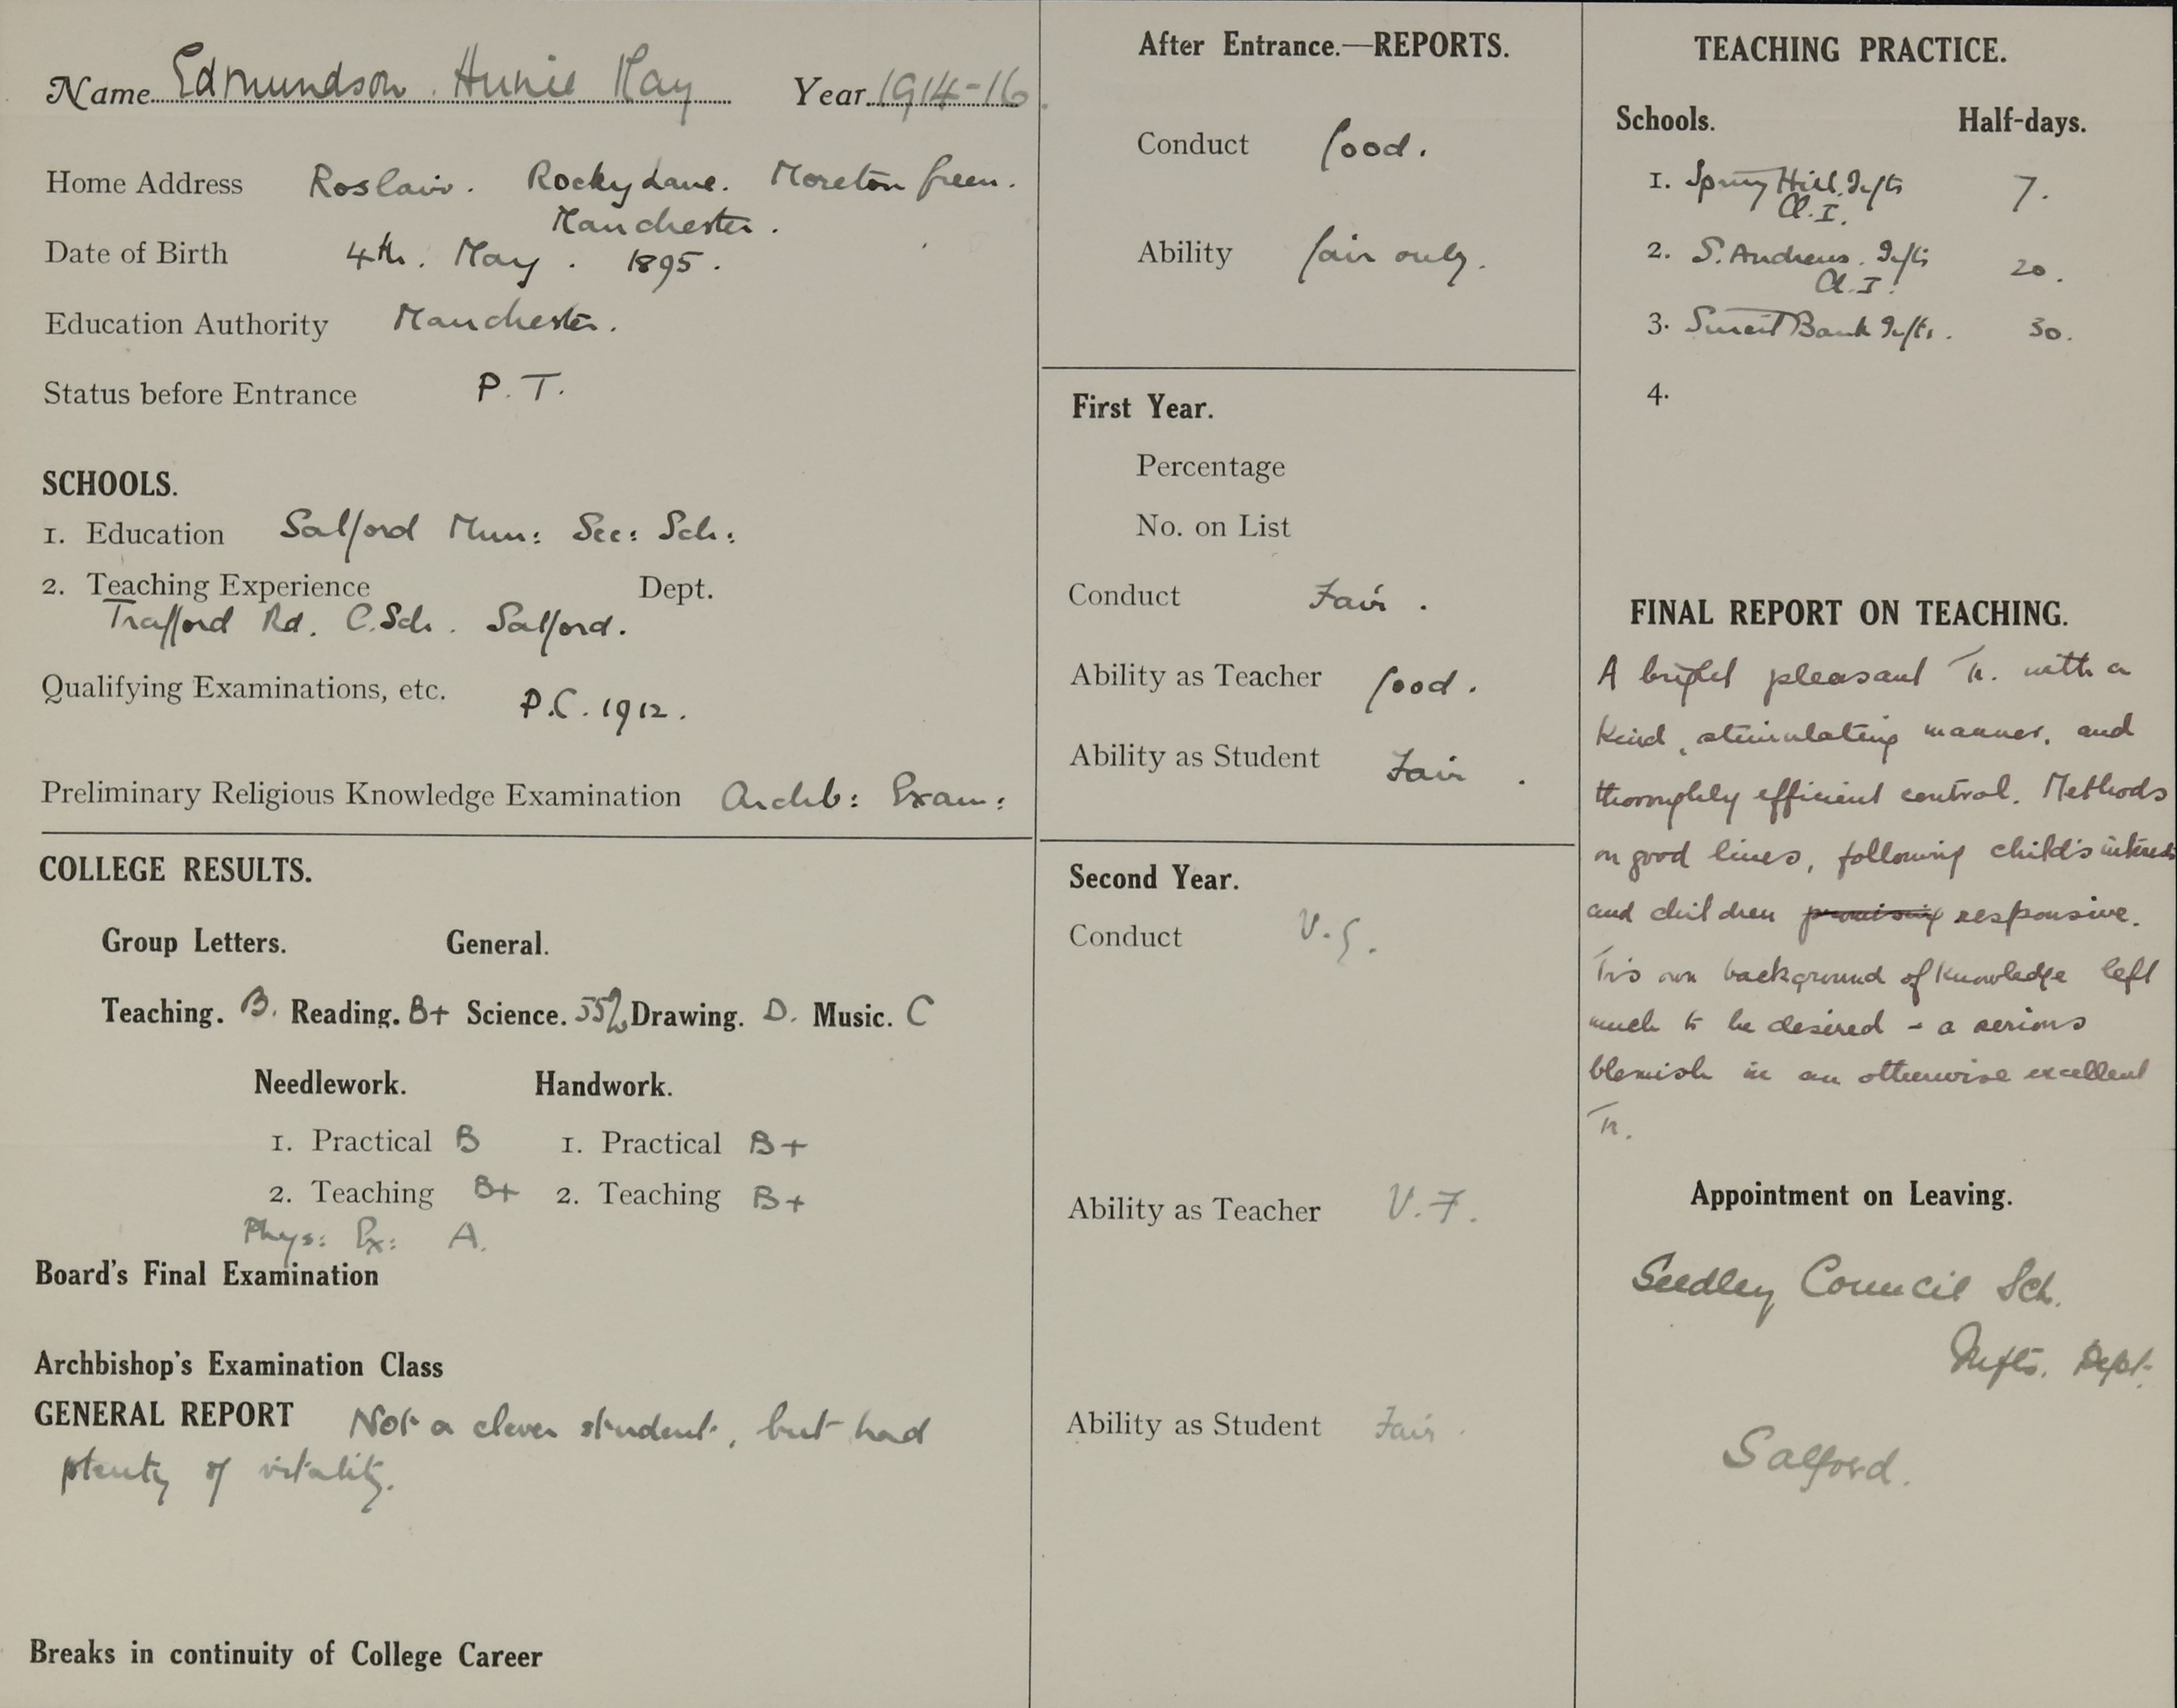 Name Edmundson. Annie May Year 1914-16.
Home Address Roslair. Rocky Lane. Moreton Green.
Manchester.
Date of Birth 4th. May. 1895.
Education Authority Manchester.
Status before Entrance P.T.
SCHOOLS.
1. Education Salford Mun: Sec: Sch:
2. Teaching Experience Dept.
Trafford Rd. C.Sch. Salford.
Qualifying Examinations, etc. P.C. 1912.
Preliminary Religious Knowledge Examination Archb: Exam:
COLLEGE RESULTS.
Group Letters. General.
Teaching. B. Reading. B+ Science. 55% Drawing. D. Music. C
Needlework. Handwork.
1. Practical B 1. Practical B+
2. Teaching B+ 2. Teaching B+
Phys: Ex: A.
Board's Final Examination
Archbishop's Examination Class
GENERAL REPORT Not a clever student, but had
plenty of vitality.
Breaks in continuity of College Career
After Entrance.—REPORTS.
Conduct Good.
Ability Fair only.
First Year.
Percentage
No. on List
Conduct Fair.
Ability as Teacher Good.
Ability as Student Fair.
Second Year.
Conduct V.G.
Ability as Teacher V.F.
Ability as Student Fair.
TEACHING PRACTICE.
Schools. Half-days.
1. Spring Hill. Infts 7.
Cl. I.
2. S. Andrews. Infts 20.
Cl. I.
3. Bank Infts. 30.
4.
FINAL REPORT ON TEACHING.
A bright pleasant Tr. with a
kind, stimulating manner, and
thoroughly efficient control. Methods
on good lines, following child's interests
and children promising responsive.
Tr's own background of knowledge left
much to be desired - a serious
blemish in an otherwise excellent
Tr.
Appointment on Leaving.
Seedley Council Sch.
Infts. Dept.
Salford.